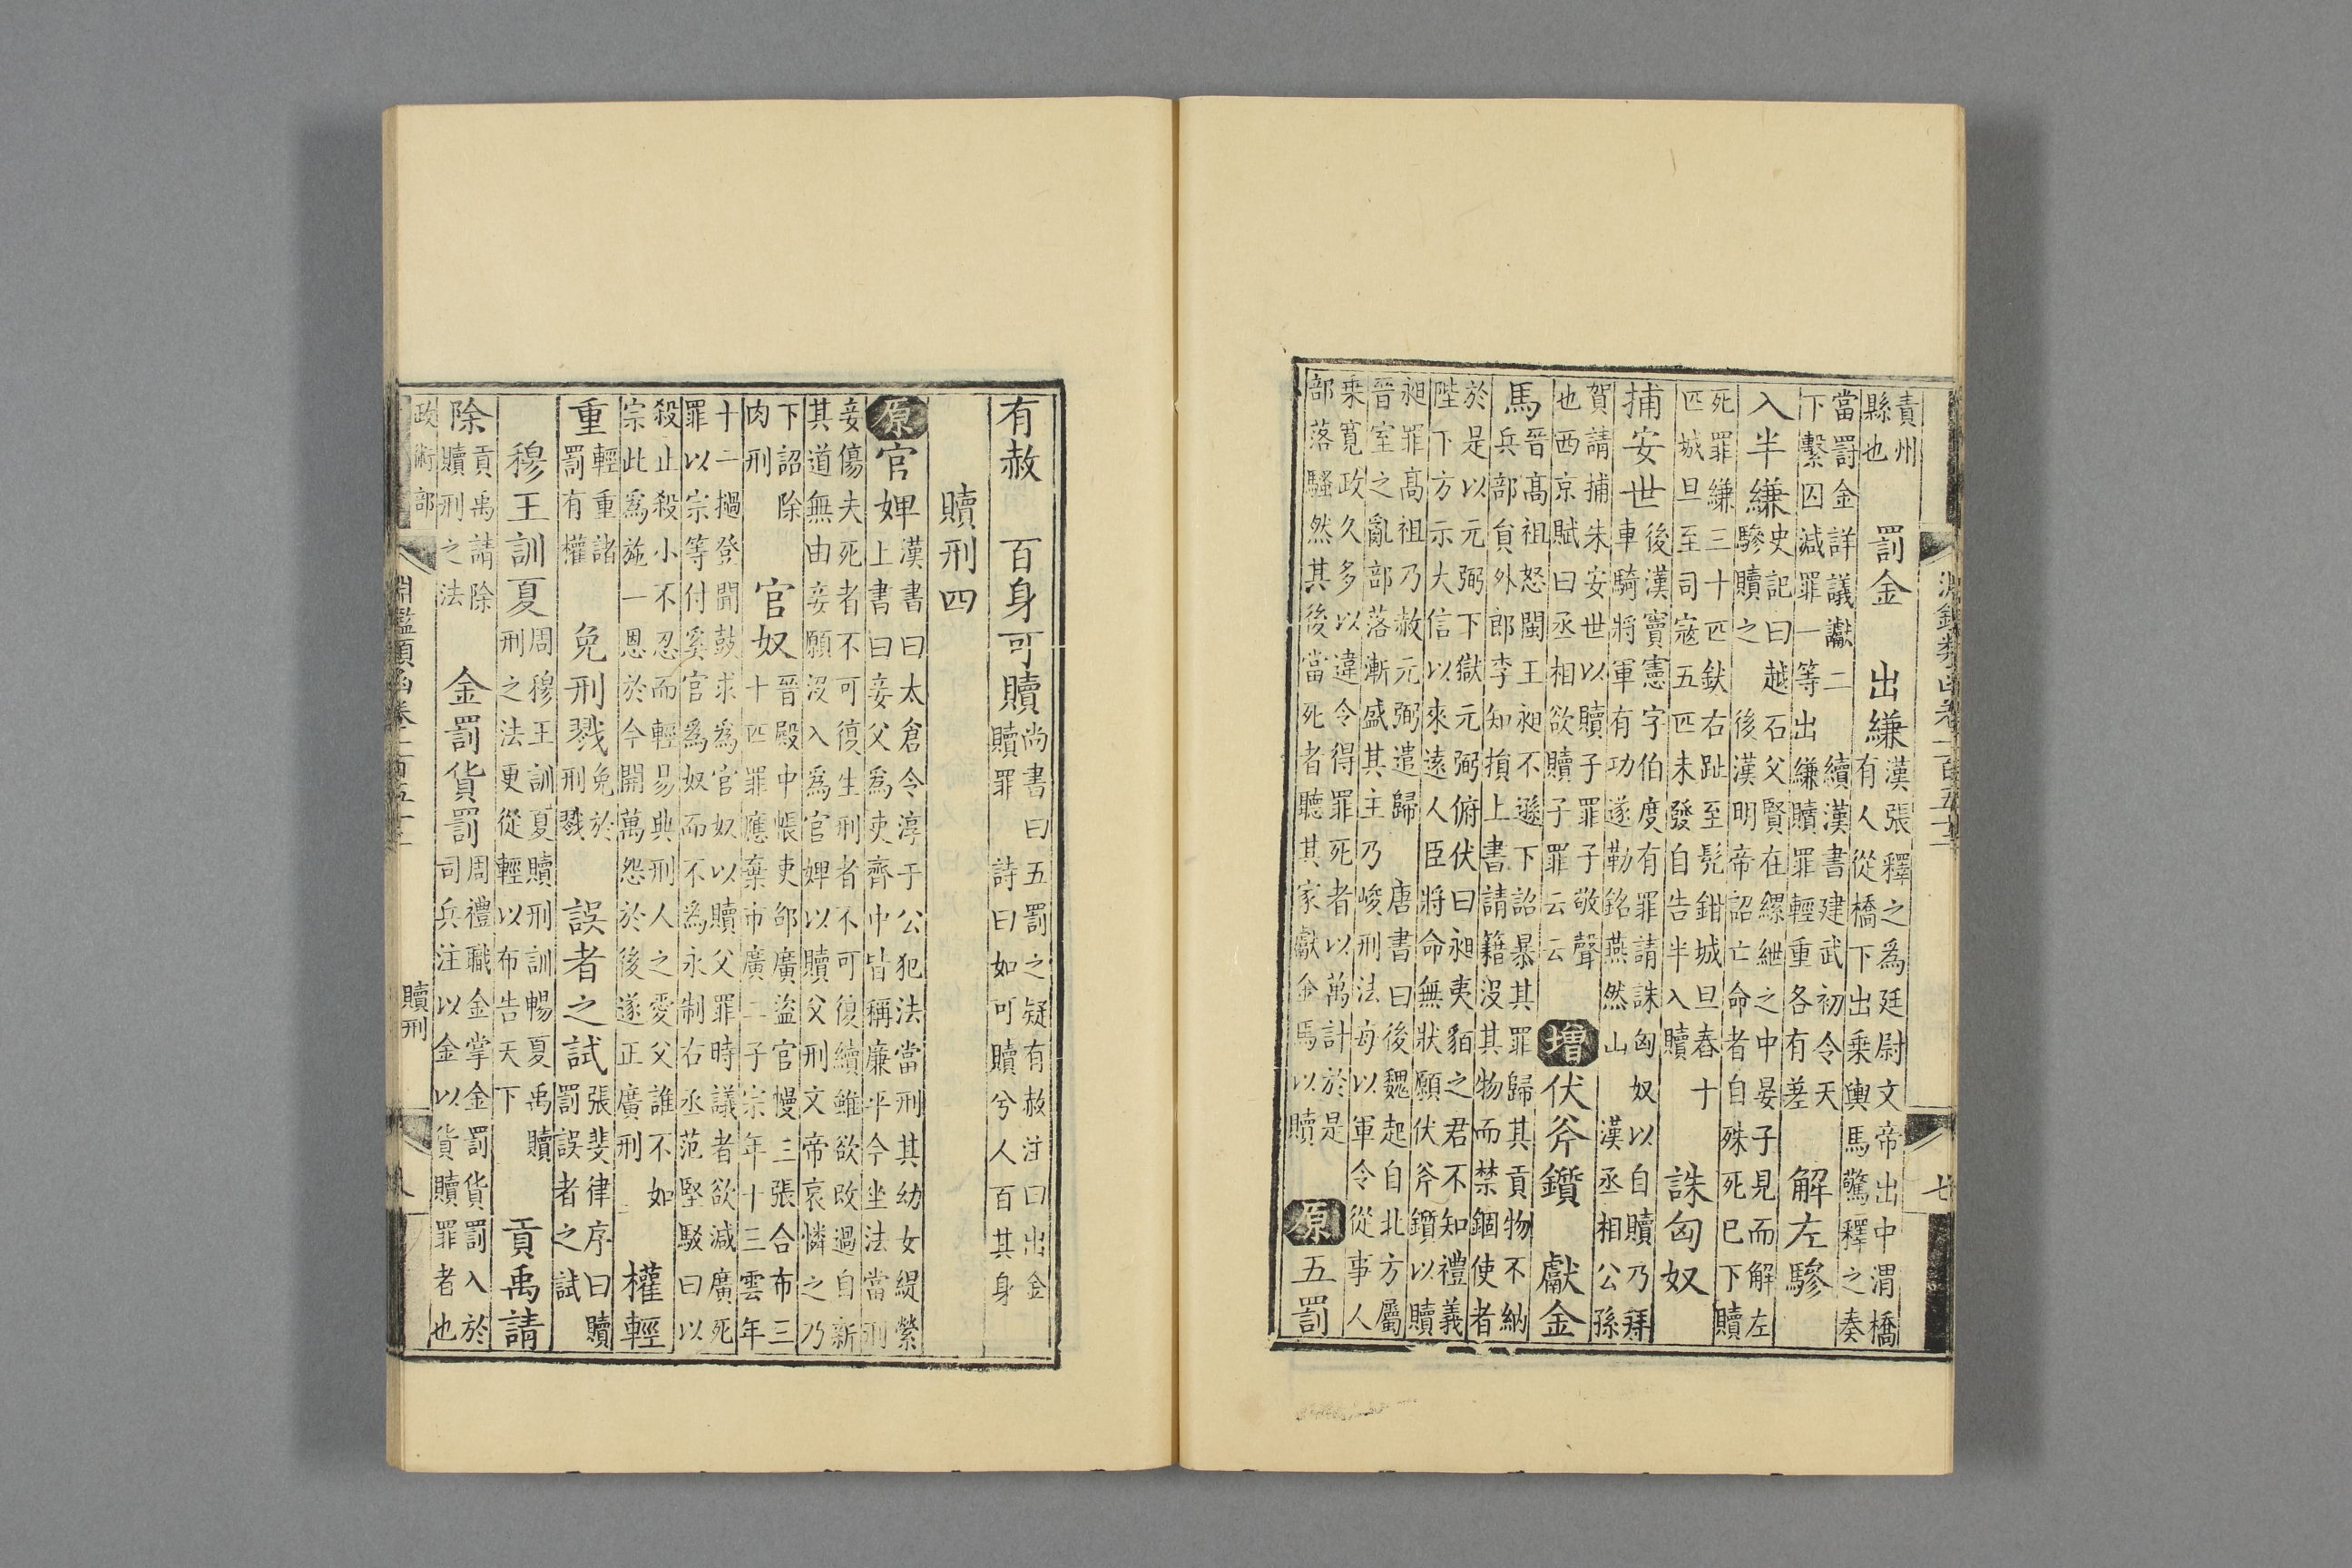 淵鑑類函卷一百五十三 七
責州
縣也
罰金 出縑
漢張釋之為廷尉文帝出中渭橋
有人從橋下出乘輿馬驚釋之奏
當罰金詳議讞二 續漢書建武初令天
下繫囚減罪一等出縑贖罪輕重各有差
解左驂
入半縑
史記曰越石父賢在縲絏之中晏子見而解左
驂贖之 後漢明帝詔亡命者自殊死已下贖
死罪縑三十匹釱右趾至髡鉗城旦舂十
匹城旦至司寇五匹未發自告半入贖
誅匈奴
捕安世
後漢竇憲字伯度有罪請誅匈奴以自贖乃拜
車騎將軍有功遂勒銘燕然山 漢丞相公孫
賀請捕朱安世以贖子罪子敬聲
也西京賦曰丞相欲贖子罪云云
增 伏斧鑕 獻金
馬
晉高祖怒閩王昶不遜下詔暴其罪歸其貢物不納
兵部貟外郎李知損上書請籍沒其物而禁錮使者
於是以元弼下獄元弼俯伏曰昶夷貊之君不知禮義
陛下方示大信以來遠人臣將命無狀願伏斧鑕以贖
昶罪高祖乃赦元弼遣歸 唐書曰後魏起自北方屬
晉室之亂部落漸盛其主乃峻刑法每以軍令從事人
乗寬政久多以違令得罪死者以萬計於是
部落騷然其後當死者聽其家獻金馬以贖
原 五罰
有赦 百身可贖
尚書曰五罰之疑有赦注曰出金
贖罪 詩曰如可贖兮人百其身
贖刑四
原 官婢
漢書曰太倉令淳于公犯法當刑其幼女緹縈
上書曰妾父為吏齊中皆稱廉平今坐法當刑
妾傷夫死者不可復生刑者不可復續雖欲改過自新
其道無由妾願沒入為官婢以贖父刑文帝哀憐之乃
下詔除
肉刑
官奴
晉殿中帳吏邵廣盜官幔三張合布三
十匹罪應棄市廣二子宗年十三雲年
十二撾登聞鼓求為官奴以贖父罪時議者欲減廣死
罪以宗等付奚官為奴而不為永制右丞范堅駁曰以
殺止殺殺小不忍而輕易典刑人之愛父誰不如
宗此為施一恩於今開萬怨於後遂正廣刑
權輕
重
輕重諸
罰有權
免刑戮
免於
刑戮
誤者之試
張斐律序曰贖
罰誤者之試
穆王訓夏
周穆王訓夏贖刑訓暢夏禹贖
刑之法更從輕以布告天下
貢禹請
除
貢禹請除
贖刑之法
金罰貨罰
周禮職金掌金罰貨罰入於
司兵注以金以貨贖罪者也
政術部
淵鑑類函卷一百五十三 贖刑 八